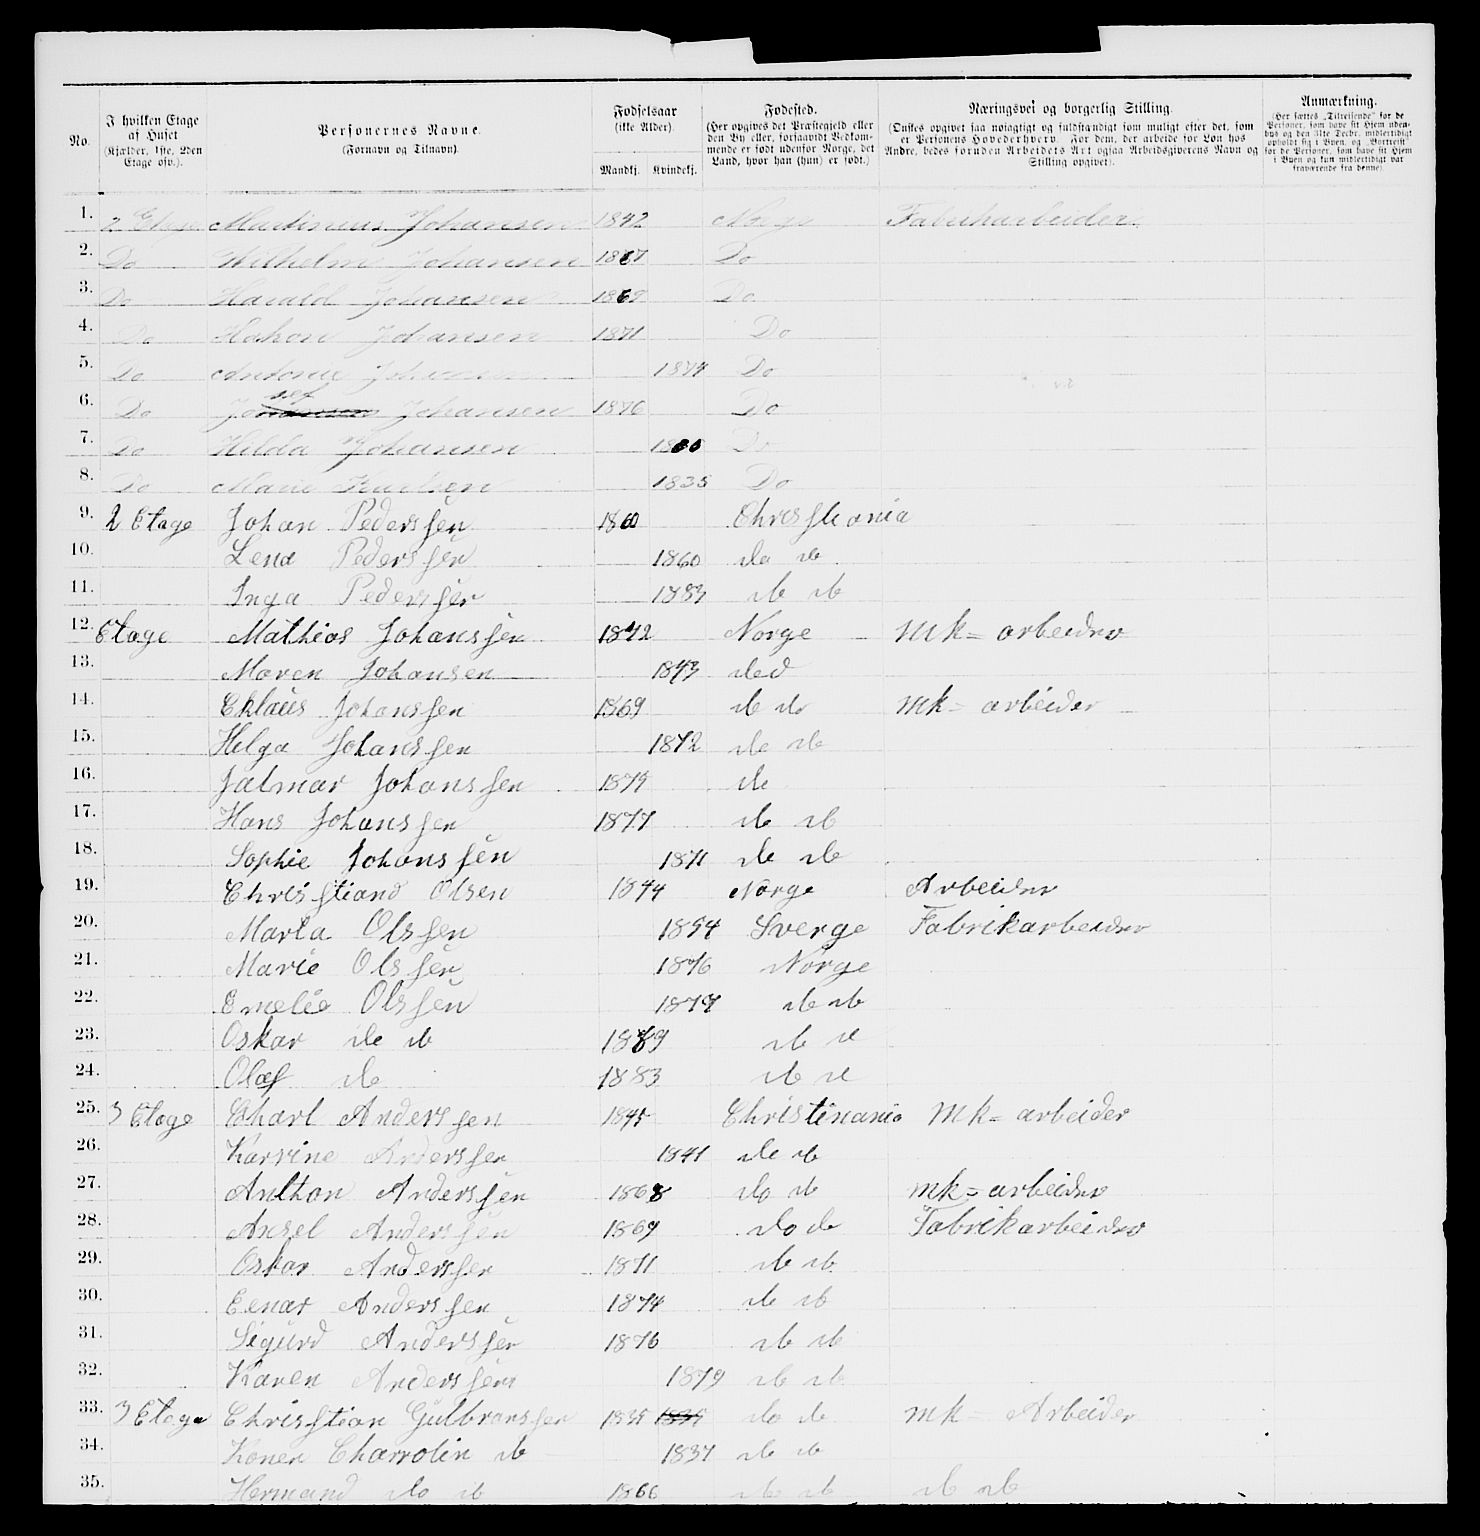 No.
I hvilken Etage af Huset
(Kjælder, 1ste, 2den Etage osv.).
Personernes Navne.
(Fornavn og Tilnavn).
Fødselsaar
(ikke Alder).
Mandkj. Kvindekj.
Fødested.
(Her opgives det Præstegjeld eller
den By eller, forsaavidt Vedkom-
mende er født udenfor Norge, det
Land, hvor han (hun) er født.)
Næringsvei og borgerlig Stilling.
(Ønskes opgivet saa nøiagtigt og fuldstændigt som muligt efter det, som
er Personens Hovederhverv. For dem, der arbeide for Løn hos
Andre, bedes foruden Arbeidets Art ogsaa Arbeidsgiverens Navn og
Stilling opgivet).
Anmærkning.
(Her sættes „Tilreisende" for de
Personer, som have sit Hjem uden-
bys og den 31te Decbr. midlertidigt
opholdt sig i Byen, og „Bortreist"
for de Personer, som have sit Hjem
i Byen og kun midlertidigt var
fraværende fra denne).
1. 2 Etage Martinius Johansen 1842 Norge Fabrikarbeider
2. Do Wilhelm Johansen 1867 Do
3. Do Harald Johansen 1869 Do
4. Do Hakon Johansen 1871 Do
5. Do Antonie Johansen 1874 Do
6. Do Josef Johansen 1876 Do
7. Do Hilda Johansen Do
8. Do Marie Karlsen 1835 Do
9. 2 Etage Johan Pederssen 1860 Chresstiania
10. Lena Pederssen 1860 do do
11. Inga Pederssen 1883 do do
12. Etage Mathias Johanssen 1842 Norge mk= arbeider
13. Maren Johansen 1843 do d
14. Cklaus Johanssen 1869 do do mk= arbeider
15. Helga Johanssen 1872 do do
16. Jalmar Johanssen 1875 do
17. Hans Johanssen 1877 do do
18. Sophie Johanssen 1871 do do
19. Chrisstiand Olsen 1844 Norge Arbeider
20. Marta Olssen 1854 Sverge Fabrikarbeider
21. Marie Olssen 1876 Norge
22. Emelie Olssen 1877 do do
23. Oskar do do 1889 do d
24. Olaf do 1883 do d
25. 3 Etage Charl Anderssen 1845 Christinania mk= arbeider
26. Karrine Anderssen 1841 do do
27. Anthon Anderssen 1868 do do mk= arbeider
28. Axsel Anderssen 1869 do do Fabrikarbeider
29. Oskar Anderssen 1871 do do
30. Eenar Anderssen 1874 do do
31. Sigurd Anderssen 1876 do do
32. Karen Anderssen 1879 do do
33. 3 Etage Chrisstian Gulbranssen 1835 1835 do do mk= Arbeider
34. Konen Charrolin do 1837 do do
35. Hermand do do 1866 do do do do